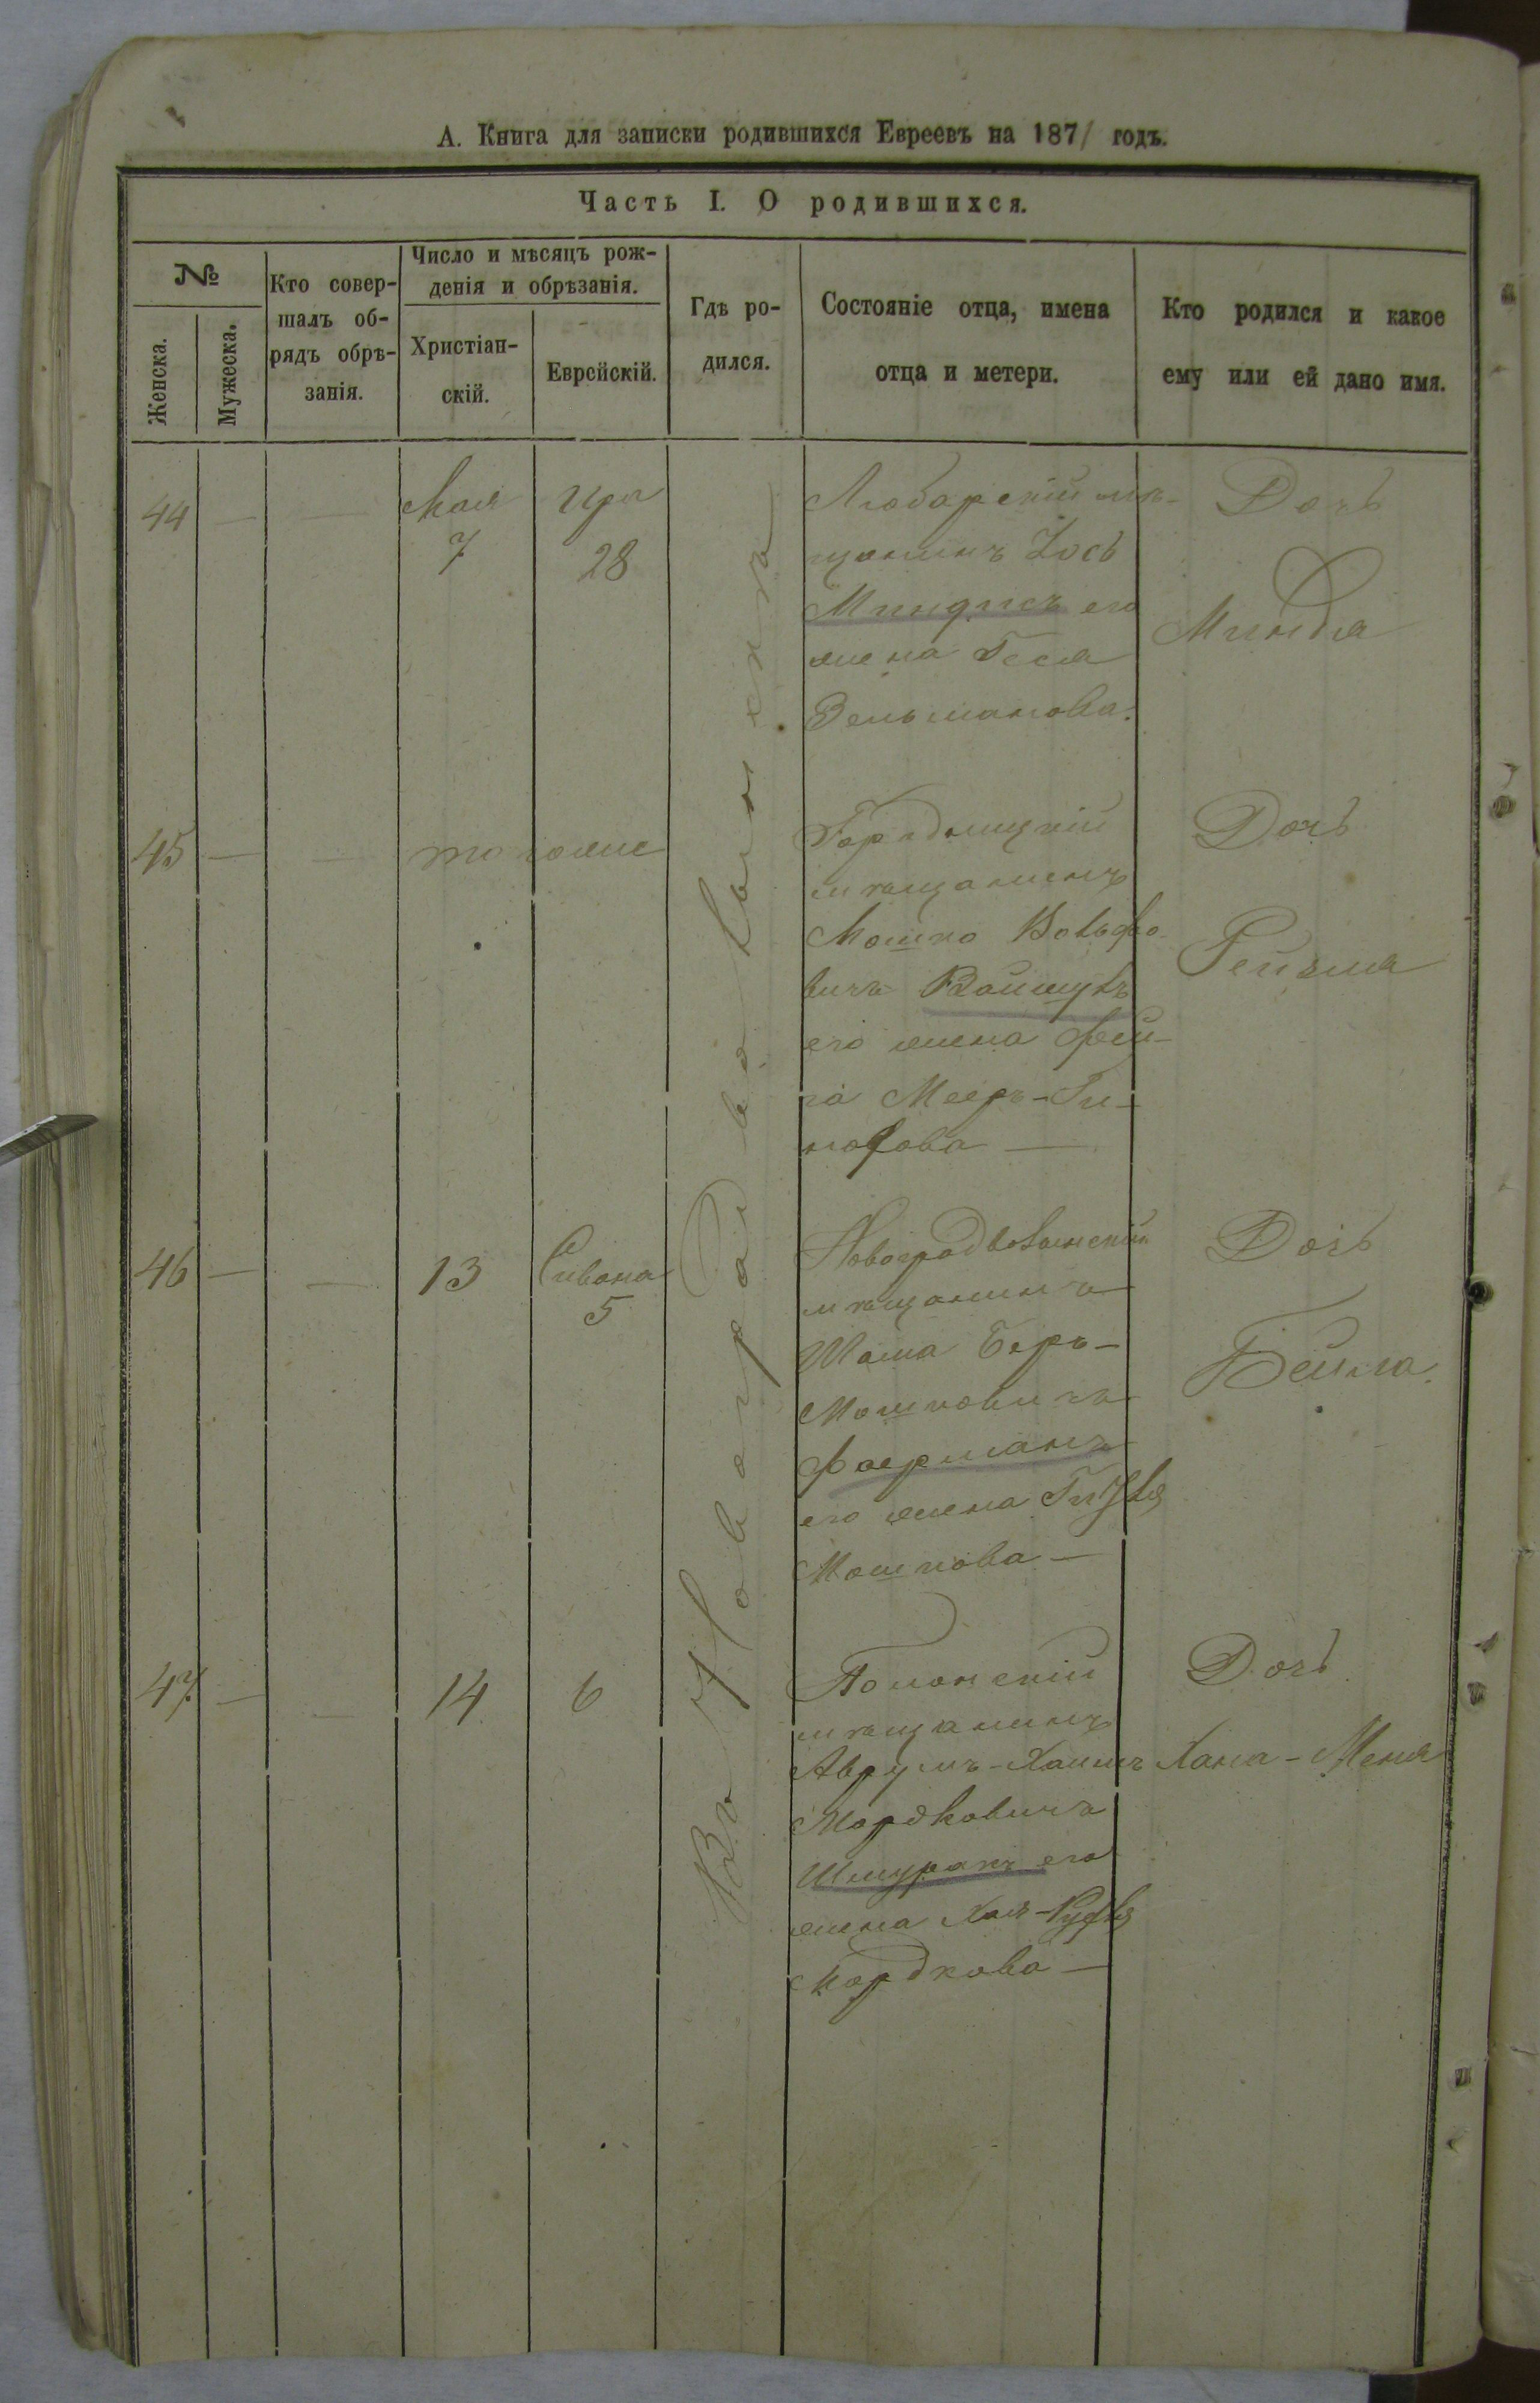 А. Книга для записки родившихся Евреевъ на 1871 годъ.
Часть I. О родившихся.
№
Женска.
Мужеска.
Кто совер-
шалъ об-
рядъ обрѣ-
занія.
Число и мѣсяцъ рож-
денія и обрѣзанія.
Христіан-
скій.
Еврейскій.
Гдѣ ро-
дился.
Состояніе отца, имена
отца и метери.
Кто родился и какое
ему или ей дано имя.
Въ Новоградволынскѣ
44 — —
Мая
7
Ира
28
Любарскій мѣ-
щанинъ Іось
Миндисъ его
жена Геся
Зельманова.
Дочь
Миндля
45 — —
тогоже
Городницкій
мѣщанинъ
Мошко Вольфо-
вичъ Ваймунъ
его жена Фей-
га Меер-Ги-
нохова —
Дочь
Рейзля
46 — —
13
Сивана
5
Новоградволынскій
мѣщанинъ
Шама Беръ-
Мошковичъ
Фаерманъ
его жена Гитля
Мошкова —
Дочь
Бейла.
47 — —
14
6
Полонскій
мѣщанинъ
Аврумъ-Хаимъ
Мордковичъ
Шмуракъ его
жена Хая-Рухля
Мордкова —
Дочь
Хана-Меня